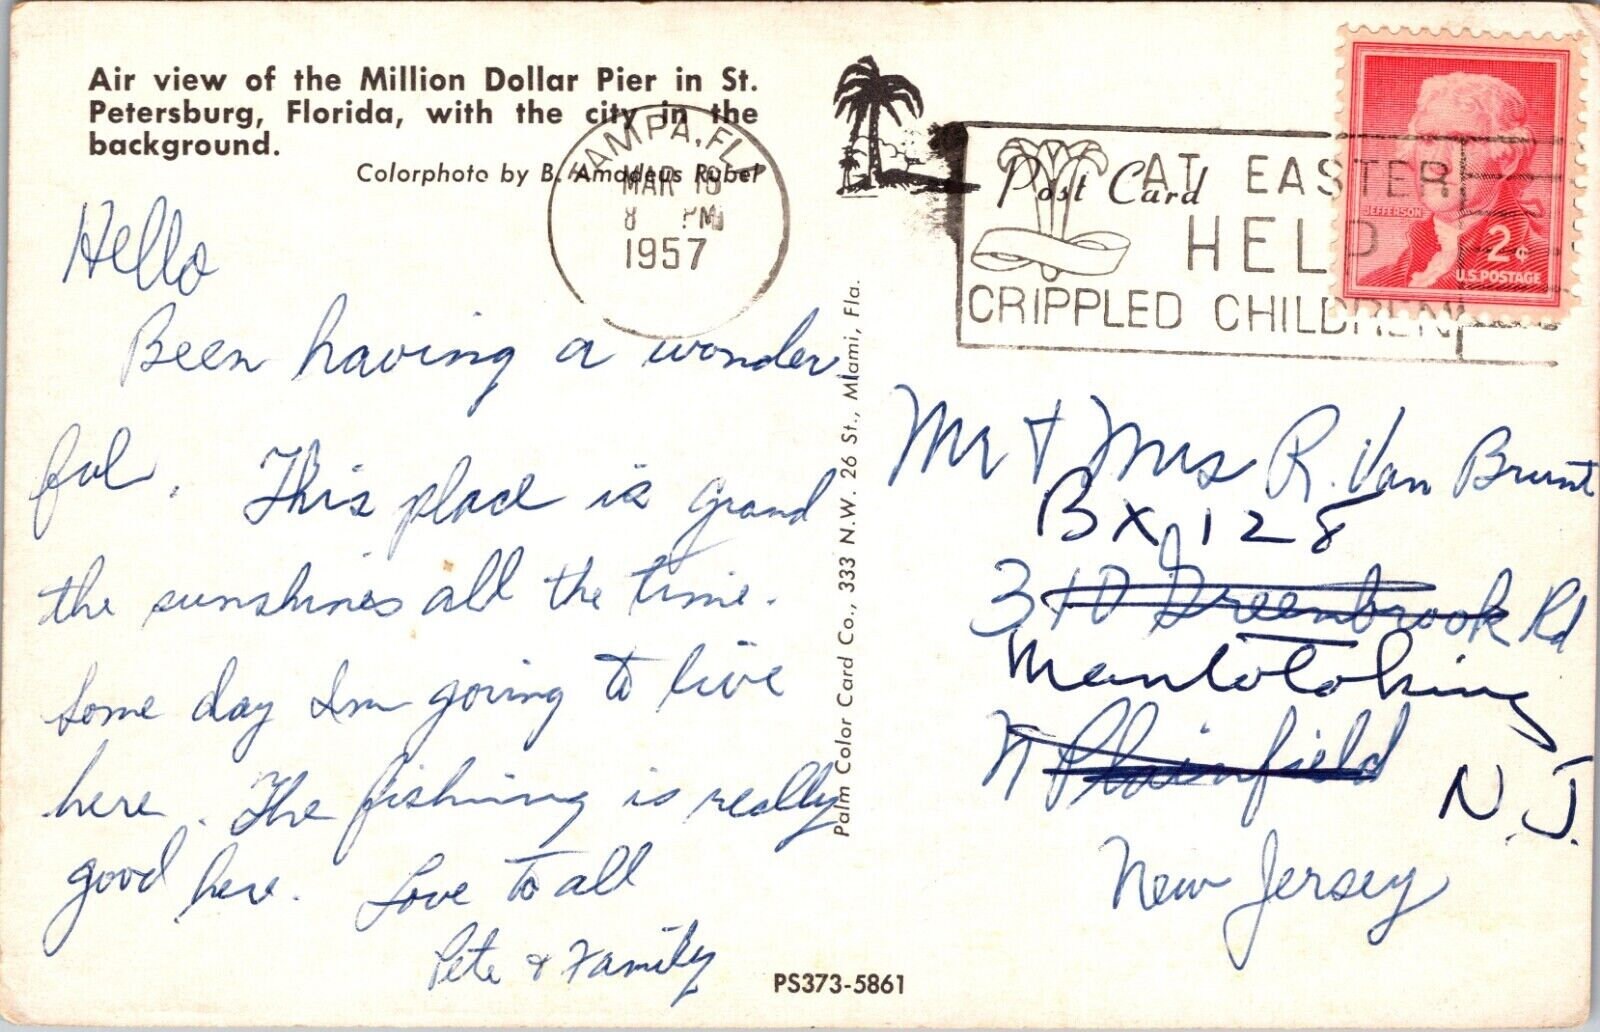 Air view of the Million Dollar Pier in St.
Petersburg, Florida, with the city in the
background.
Colorphoto by B. Amadeus Rubel
TAMPA, FLA
MAR
8 PM
1957
Post Card
AT EASTER
HELP
CRIPPLED CHILDREN
JEFFERSON
2¢
U.S. POSTAGE
Hello
Been having a wonder
ful. This place is grand
the sunshines all the time.
Some day Im going to live
here. The fishining is really
good here. Love to all
Pete & Family
Palm Color Card Co., 333 N.W. 26 St., Miami, Fla.
Mr & Mrs R. Van Brunt
BX 128
310 Greenbrook Rd
Mantoloking
N Plainfield
N.J.
New Jersey
PS373-5861